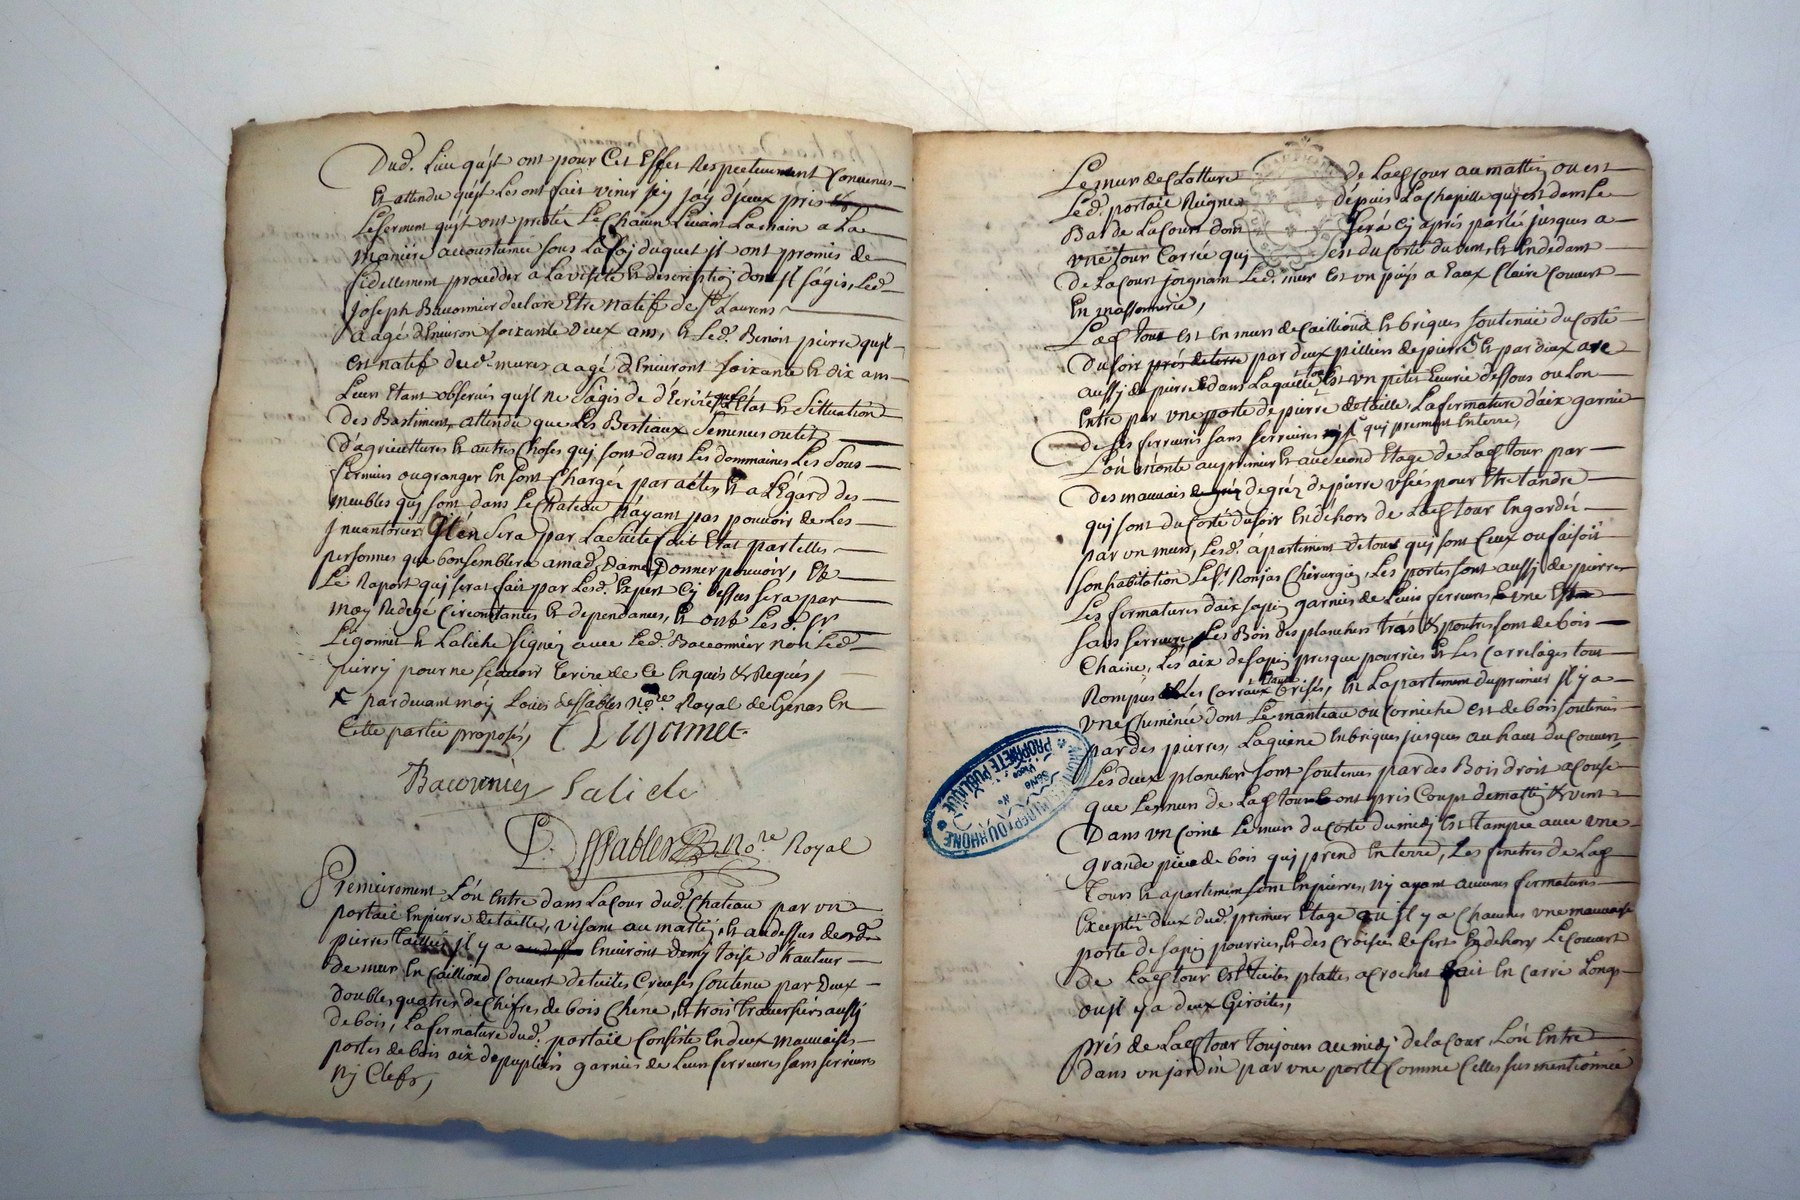 Dud. Lieu qu'jl ont pour Cet Effet Respectivement Convenus
Et attendu qu'jl Les ont fait venir jcy jáy d'jceux pris
Le serment qu'jl ont preté Le Chacun Levant La main a La
maniere accoustumée sous La foy duquel jl ont promis de
fidellement proceder a La visitte Et description dont jl s'agis, Led
Joseph Baconnier declare Etre natif de St Laurens
aagé d'Environ soixante deux ans, Et Led. Benoit pierre qu'jl
est natif dud. mures aagé d'Environt soixante Et dix ans
Leurs Etant observés qu'jl ne s'agis de d'Ecrire que L'Etat Et Sittuation
Des Bastiment, attendu que Les Bestiaux Semences outils
D'agricultures Et autres Choses qui sont dans Les dommaines Les sous
fermiers ou granger En sont Chargéz par actes, Et a L'Egard des
meubles qui sont dans Le Chateau N'ayant pas pouvoir de Les
jnvantorier jl En Sera par La Suitte fait Etat par telles
personnes que bon semblera a mad. Dame Donner pouvoir, Et
Le Raport qui serat fait par Lesd. Expert Cy dessus sera par
moy Redegé Circonstances Et dependances, Et ont Lesd. Sr
Ligonnet Et Laliche Signéz avec Led. Baconnier non Led
pierre pour ne sçavoir Ecrire de Ce Enquis & Requis,
par devant moy Louis dessables No.re Royal de Genas En
Cette partie proposés, Ligonnet
Baconnier Laliche
L. Dessables No.re Royal
Premierement L'on Entre dans La Cour dud. Chateau par un
portail En pierre de taille, visant au mattin, Et au dessus desd.
pierres taillées jl y a Environt demy toise d'hauteur
de mur En Caillioud Couvert de tuiles Creuses soutenu par Deux
doubles quatres de Chifres de bois Chene, Et trois traversiers aussj
de bois, La fermature dud. portail Consiste En deux mauvaises
portes de bois aix de pupliers garnies de Leurs ferrures sans serrures
Nj Clefs,
Le mur de Clotture de Lad. Cour au mattin ou est
Led. portail Reigne depuis La chapelle qui est dans Le
Bas de La Cour dont sera cy aprés parlé jusques a
une tour Carrée qui est du Costé du vent, Et En dedant
De La Court joignant Led. mur Est un puys a Eaux Claire Couvert
En massonnerie,
Lad. tour est En murs de Caillioud Et briques soutenüe du Costé
Du soir par deux pilliers de pierre Et par deux arc
aussj de pierre dans Laquelle tour Est un petit Ecurie dessous ou L'on
Entre par une porte de pierre de taille, La fermature d'aix garnie
de Ses ferrures sans serrures qui prennent En terre,
L'on monte au premier Et au second Etage de Lad. tour par
Des mauvais degréz de pierre uséés pour Etre tandre
qui sont du Costé du soir En dehors de Lad. tour En gardés
par un murs, Lesd. apartement de tour qui sont Ceux ou faisoit
son habitation Le Sr Ronjas Chirurgien, Les portes sont aussj de pierres
Les fermatures d'aix sapin garnies de Leurs ferrures
sans serrure, Les Bois des planchers tras & poutres sont de bois
Chaine, Les aix de sapin presque pourries Et Les Carrelages tout
Rompus Les Carraux Etant brisés, En L'apartement du premier jl y a
une Cheminée dont Le manteau ou Corniche est de bois soutenus
par des pierres, La guène En briques jusques au haut du Couvert,
Les deux planchers sont soutenus par des Bois droit a Cause
que Les murs de Lad. tour ont pris Coupt de mattin & vent
Dans un Coint Le mur du Costé du midj Est Etampée avec une
grande piece de bois qui prend En terre, Les finetres de Lad.
Tours Et apartement sont En pierres, Nj ayant aucunes fermatures
Excepté deux dud. premier Etage ou jl y a Chacunes une mauvaise
porte de sapin pourries, Et des Croisées de fert En dehors Le Couvert
de Lad. tour est de tuiles plattes a Crochet fait En Carré Longs
ou jl y a deux Giroites,
Prés de Lad. tour toujours au midj de la Cour L'on Entre
dans un jardin par une porte Comme Celles sus mentionnée
PROPRIETE PUBLIQUE